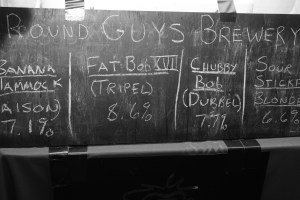 ROUND GUYS BREWERY
BANANA
HAMMOCK
(SAISON)
7.1%
FAT BOB XVII
(TRIPEL)
8.6%
CHUBBY
BOB
(DUBBEL)
7.7%
SOUR
STICKE
BLONDE
6.6%